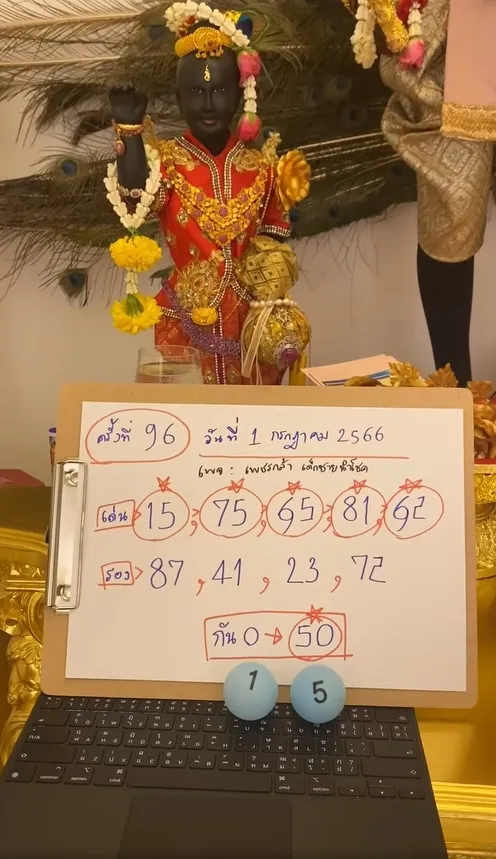 ครั้งที่ 96 วันที่ 1 กรกฎาคม 2566
เพจ : เพชรกล้า เด็กชายนำโชค
เด่น > 15 , 75 , 65 , 81 , 62
รอง > 87 , 41 , 23 , 72
กัน 0 → 50
1 5
control option ⌘ ⌘ option